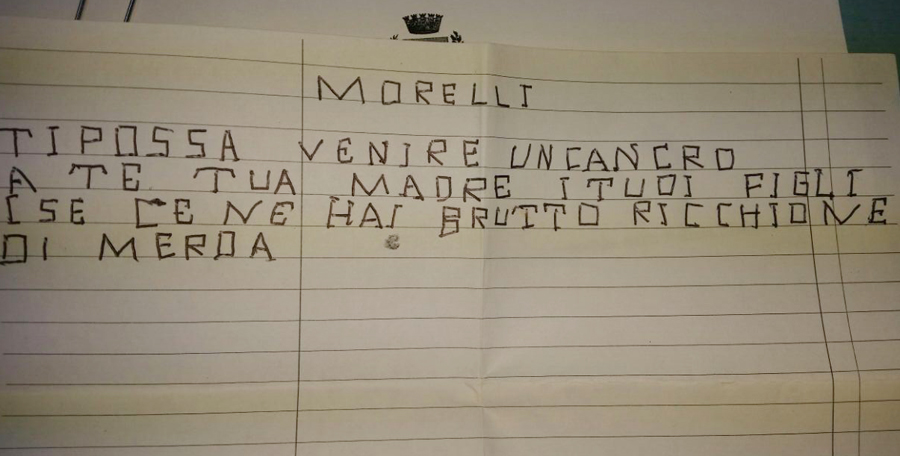 MORELLI
TIPOSSA VENIRE UNCANCRO
A TE TUA MADRE I TUOI FIGLI
ISE CE NE HAI BRUTTO RICCHIONE
DI MERDA